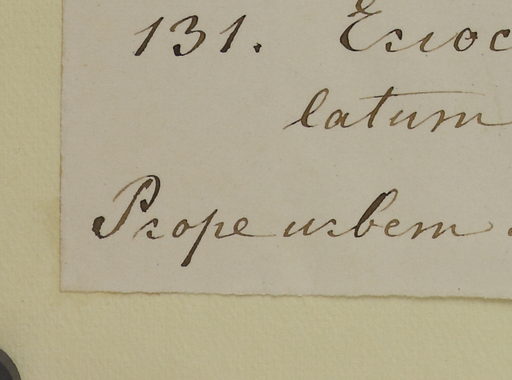 131. Erioc
latum
Prope urbem